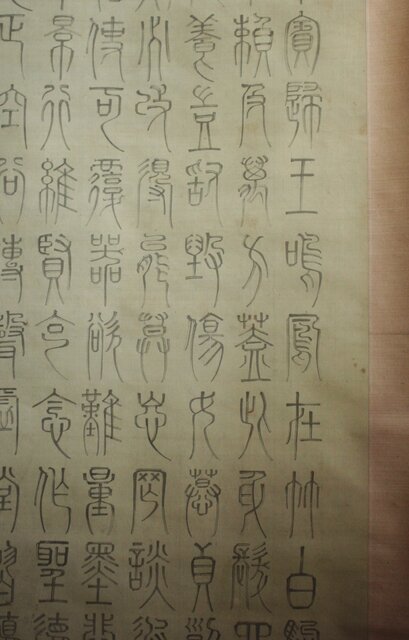 賓歸王鳴鳳在竹白駒
賴及萬方蓋此身髮四
養豈敢毀傷女慕貞
必改得能莫忘罔談彼
使可覆器欲難量墨悲
景行維賢克念作聖德
正空谷傳聲虛堂習